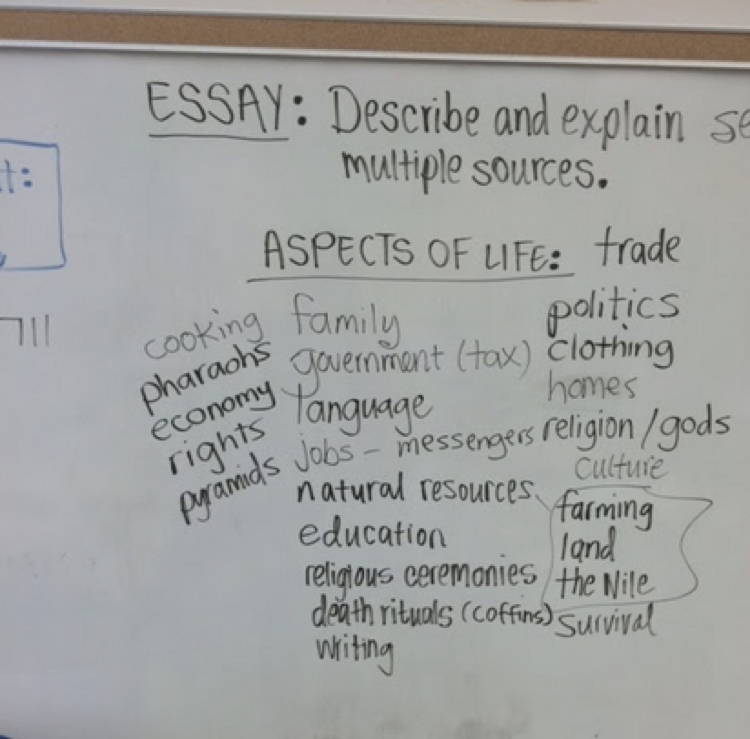 ESSAY: Describe and explain se
multiple sources.
t:
ASPECTS OF LIFE: trade
cooking
pharaohs
economy
rights
pyramids
family
government (tax)
language
jobs - messengers
natural resources
education
religious ceremonies
death rituals (coffins)
writing
politics
clothing
homes
religion/gods
culture
farming
land
the Nile
survival